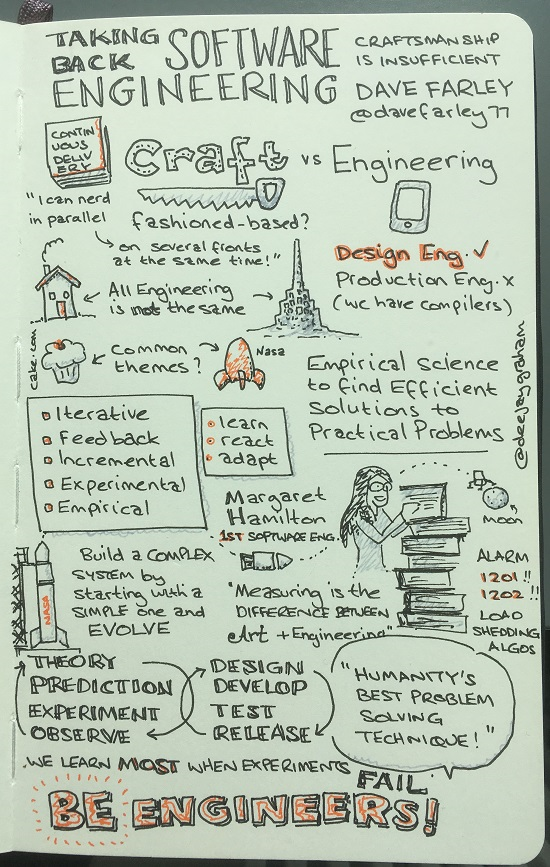 TAKING
BACK
SOFTWARE
ENGINEERING
CRAFTSMANSHIP
IS INSUFFICIENT
DAVE FARLEY
@davefarley77
CONTIN
UOUS
DELIV
ERY
Craft vs Engineering
"I can nerd
in parallel
on several fronts
at the same time!"
fashioned-based?
Design Eng. ✓
Production Eng. x
(we have compilers)
All Engineering
is not the same
cake.com
Common
themes?
Nasa
Empirical Science
to find Efficient
Solutions to
Practical Problems
@deejaygraham
Iterative
Feedback
Incremental
Experimental
Empirical
learn
react
adapt
Margaret
Hamilton
1ST SOFTWARE ENG.
moon
ALARM
1201!!
1202!!
LOAD
SHEDDING
ALGOS
NASA
Build a COMPLEX
SYSTEM by
starting with a
SIMPLE one and
EVOLVE
"Measuring is the
DIFFERENCE BETWEEN
Art + Engineering"
THEORY
PREDICTION
EXPERIMENT
OBSERVE
DESIGN
DEVELOP
TEST
RELEASE
"HUMANITY'S
BEST PROBLEM
SOLVING
TECHNIQUE!"
WE LEARN MOST WHEN EXPERIMENTS
FAIL
BE ENGINEERS!